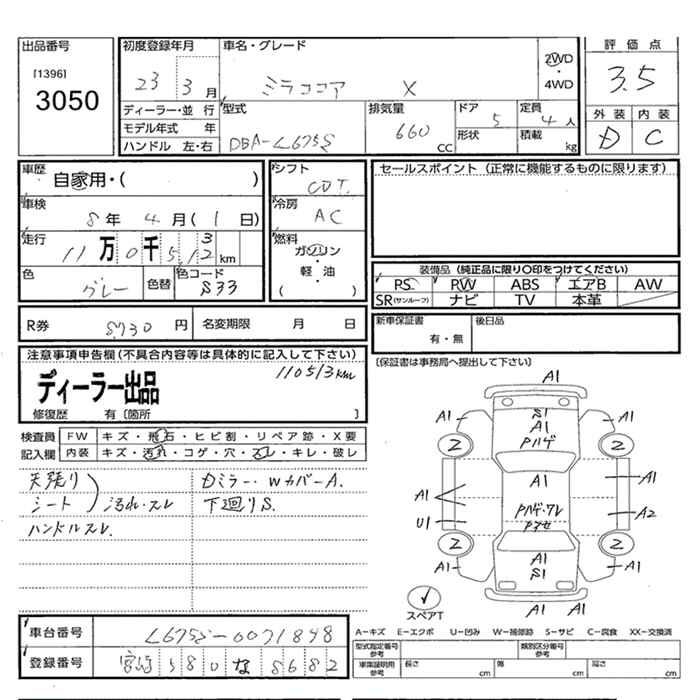 出品番号
[1396]
3050
初度登録年月
23 3月
車名・グレード
ミラココア X
2WD
・
4WD
評価点
3.5
外装 内装
D C
ディーラー・並行
モデル年式 年
ハンドル 左・右
型式
DBA-L675S
排気量
660
CC
ドア
5
形状
定員
4人
積載
kg
車歴
自家用・( )
車検
8年 4月 (1日)
走行
11万0千5123km
色
グレー
色替
色コード
S33
シフト
CVT
冷房
AC
燃料
ガソリン
・
軽・油
( )
セールスポイント (正常に機能するものに限ります)
装備品 (純正品に限り○印をつけてください)
PS PW ABS エアB AW
SR(サンルーフ) ナビ TV 本革
R券 8730円
名変期限 月 日
新車保証書
有・無
後日品
[保証書は事務局へ提出して下さい]
注意事項申告欄(不具合内容等は具体的に記入して下さい)
110513km
ディーラー出品
修復歴 有 [箇所 ]
検査員 FW キズ・飛石・ヒビ割・リペア跡・X要
記入欄 内装 キズ・汚れ・コゲ・穴・スレ・キレ・破レ
天張り
シート
汚れ・スレ
ハンドルスレ.
Dミラー・WカバーA.
下廻りS.
A1
S1
A1
A1
A1
Pハゲ
2
2
A1
A1
A1
U1
Pハゲ・ワレ
A2
Pアセ
2
2
A1
A1
A1
S1
A1
A1
スペアT
車台番号 L675S-0071848
登録番号 宮崎 580 な 8682
A-キズ E-エクボ U-凹み W-補修跡 S-サビ C-腐食 XX-交換済
型式指定番号
参考
類別区分番号
参考
車庫証明用
参考
長さ
cm
幅
cm
高さ
cm